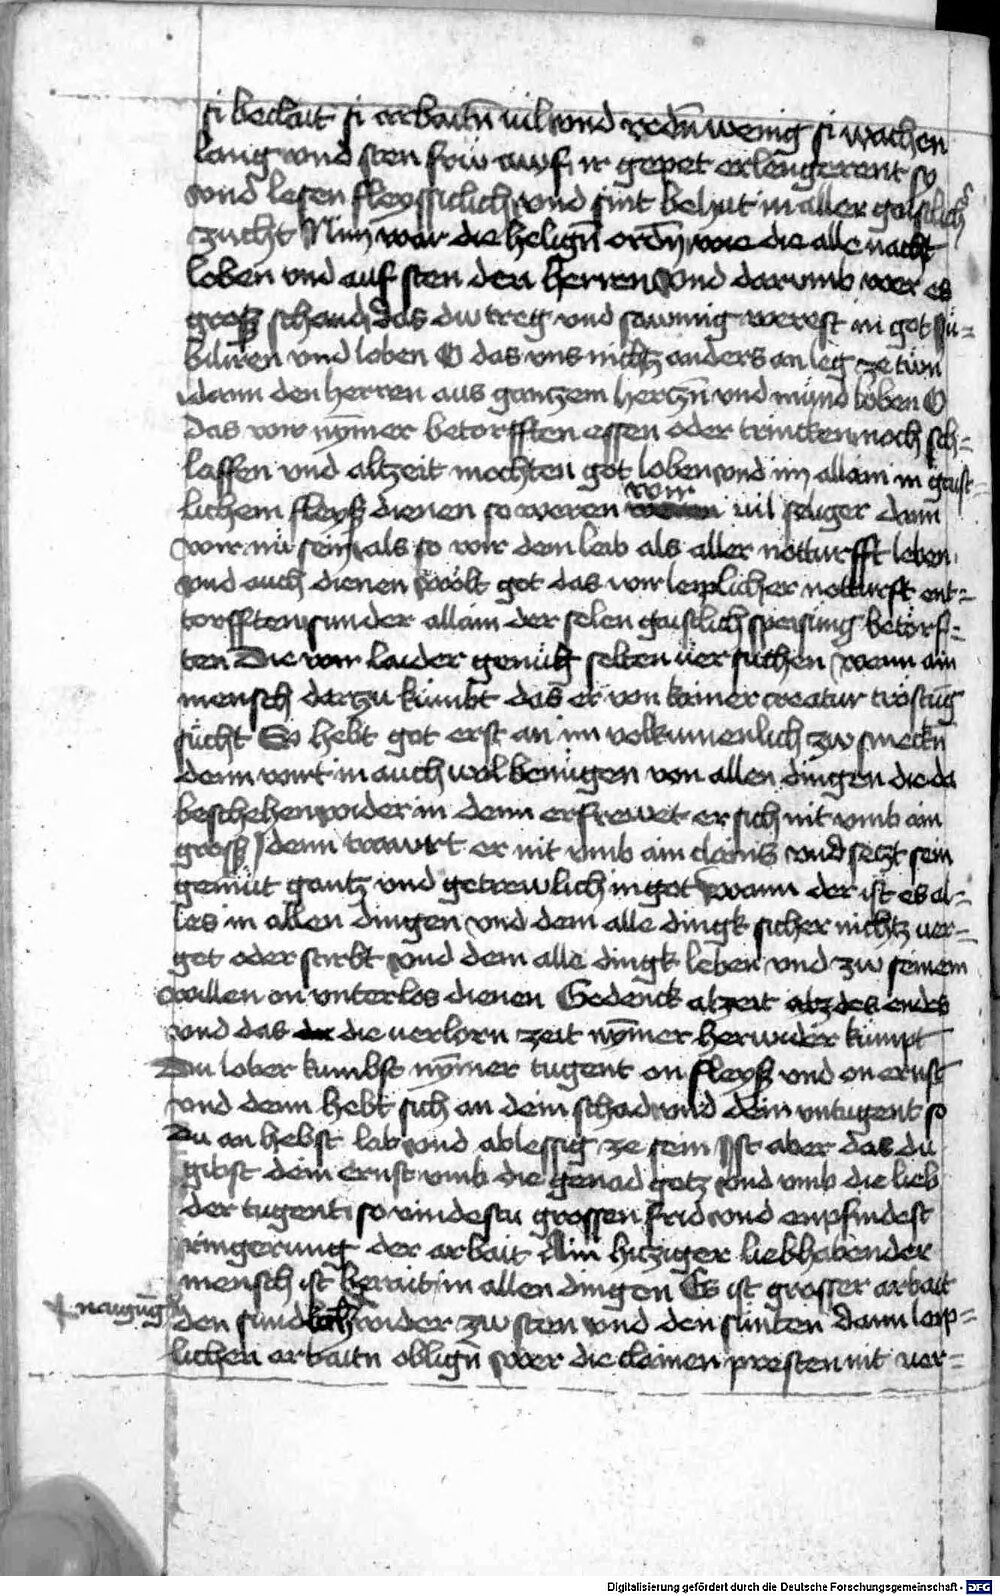 si beclait si arbaitn̄ uil vnd redn̄ wenig si wachen
lang vnd sten frw awf ir gepet erlengerent sy
vnd lesen fleyssiclich vnd sint behut in aller gaistlich
zucht Nim war die helign̄ ordn̄ wie die alle nacht
loben vnd auf sten den herren vnd darvmb wer es
grosz schand das du treg vnd sawmig werest in got ju=
biliren vnd loben O das vns nichtz anders an leg ze tun
dann den herren aus ganzem hertzn̄ vnd mund loben O
das wir nȳmer betorfften essen oder trincken noch sch=
laffen vnd altzeit mochten got loben vnd im allain in gaist=
lichem fleysz dienen so weren wir uil seliger dann
wir nu sein als so wir dem leib als aller notturfft leben
vnd auch dienen wolt got das wir leiplicher notturft ent=
torfften sunder allain der selen gaistlich speisung betorf=
ten Die wir laider genug selten uersuchen wenn ain
mensch darzu kumbt das er von kainer creatur trostūg
sucht So hebt got erst an im volkumenlich zw smeckn
denn wirt in auch wol benugen von allen dingen die da
beschehen wider in denn erfrewet er sich nit vmb ain
gross denn trawrt er nit vmb ain clains vnd setzt sein
gemut gantz vnd getrewlich in got wann der ist es al=
les in allen dingen vnd dem alle dingk sicher nichtz uer=
get oder stirbt vnd dem alle dingk leben vnd zw seinem
willen on vnterlos dienen Gedenck alzeit des endes
vnd das die uerlorn zeit nȳmer herwider kumpt
Du lober kumbst nȳmer tugent on fleysz vnd on ernst
vnd denn hebt sich an dein schad vnd dein vntugent so
Du an hebst lab vnd ablessig ze sein Ist aber das du
gibst dein ernst vmb die genad gotz vnd vmb die lieb
der tugent so vindestu grossen frid vnd enpfindest
ringerung der arbait Ain hitziger liebhabender
mensch ist berait in allen dingen Es ist grosser arbait
naigūg
den wider zw sten vnd den sunten dann leip=
lichen arbaitn oblign̄ wer die clainen presten nit uer=
Digitalisierung gefördert durch die Deutsche Forschungsgemeinschaft - DFG